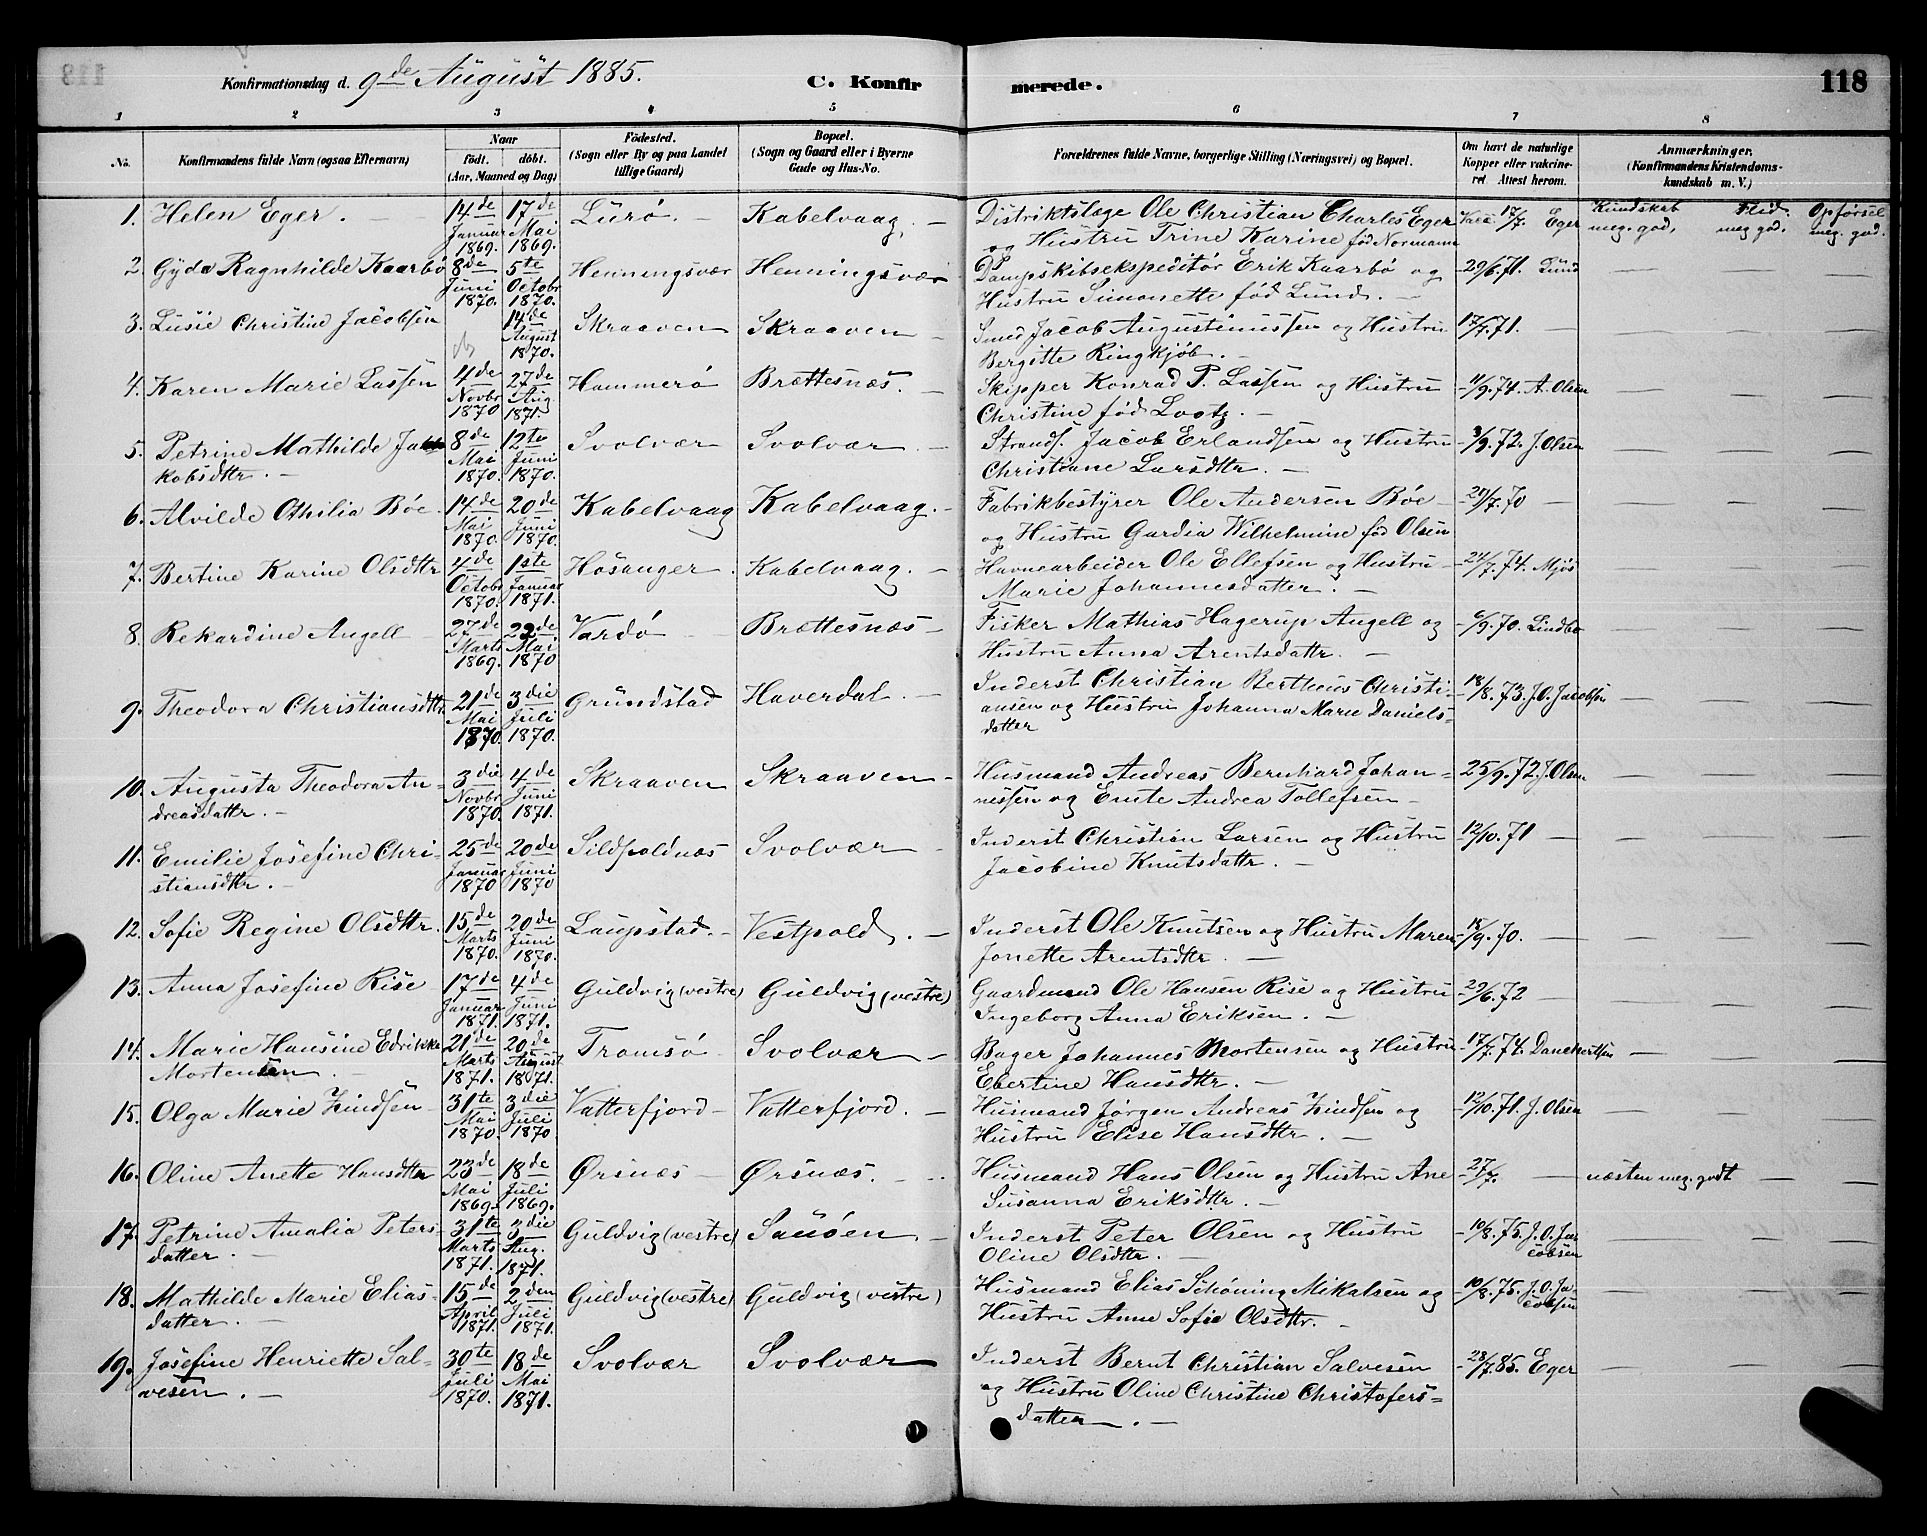 Konfirmationsdag d. 9de August 1885. C. Konfir merede. 118
1 2 3 4 5 6 7 8
No. Konfirmandens fulde Navn (ogsaa Efternavn) Naar født. døbt. (Aar, Maaned og Dag) Födested. (Sogn eller By og paa Landet tillige Gaard) Bopæl. (Sogn og Gaard eller i Byerne Gade og Hus-No. Forældrenes fulde Navne, borgerlige Stilling (Næringsvei) og Bopæl. Om havt de naturlige Kopper eller vakcineret Attest herom. Anmærkninger. (Konfirmandens Kristendomskundskab m. V.)
1. Helen Eger. 14de Januar 1869. 17de Mai 1869. Lurø. Kabelvaag. Distriktslæge Ole Christian Charles Eger Vacc. 17/7. Eger Kundskab meg. god, Flid. meg god. Opførsel meg. god.
og Hustru Trine Karine fød Normann
2. Gyda Ragnhilde Kaarbø 8de Juni 1870. 5te Octobr 1870. Henningsvær Henningsvær Dampskibsekspeditør Erik Kaarbø og 29/6.71. Lund
Hustru Simonette fød Lund. —
3. Lusie Christine Jacobsen 14de August 1870. Skraaven Skraaven Smed Jacob Augustinussen og Hustru 17/7.71. —
Bergitte Ringkjøb. —
4. Karen Marie Lassen 4de Novbr 1870 27de Aug. 1871. Hammerø Brættesnæs. Skipper Konrad P. Lassen og Hustru 11/9.74. A. Olsen
Christine fød Lootz. —
5. Petrine Mathilde Ja 8de Mai 1870. 12te Juni 1870. Svolvær Svolvær Strands. Jacob Erlandsen og Hustru 3/9.72. J. Olsen
kobsdttr. — Christiane Larsdttr. —
6. Alvilde Othilia Bøe. 14de Mai 1870. 20de Juni 1870. Kabelvaag Kabelvaag. Fabrikbestyrer Ole Andersen Bøe 20/7.70 —
og Hustru Gardia Wilhelmine fød Olsen
7. Bertine Karine Olsdttr 4de Octobr 1870. 1ste Januar 1871. Hosanger. Kabelvaag. Havnearbeider Ole Ellefsen og Hustru 24/7.74. Mjøs
Marie Johannesdatter. —
8. Rekardine Angell 27de Marts 1869. 22de Mai 1870 Vardø Brættesnæs Fisker Mathias Hagerup Angell og 6/9.70. Lindbo
Hustru Anna Arentsdattr. —
9. Theodora Christiansdttr 21de Mai 1870. 3die Juli 1870. Grundstad Haverdal. Inderst Christian Bertheus Christi- 18/8.73. J.O. Jacobsen
ansen og Hustru Johanna Marie Daniels-
datter
10. Augusta Theodora An- 3die Novbr 1870. 4de Juni 1871. Skraaven Skraaven Husmand Andreas Bernhard Johan- 25/9.72. J. Olsen
dreasdattr. — nissen og Emte Andrea Tollefsen —
11. Emilie Josefine Chri- 25de Januar 1870 20de Juni 1870 Sildpoldnæs Svolvær Inderst Christian Larsen og Hustru 12/10.71 —
stiansdttr. — Jacobine Knutsdattr. —
12. Sofie Regine Olsdttr. 15de Marts 1870. 20de Juni 1870. Laupstad. Vestpold. Inderst Ole Knutsen og Hustru Maren 18/9.70. —
Jonette Arentsdttr. —
13. Anna Josefine Rise 17de Januar 1871. 4de Juni 1871. Guldvig (vestre) Guldvig (vestre) Gaardmand Ole Hansen Rise og Hustru 29/6.72 —
Ingeborg Anna Eriksen. —
14. Marie Hansine Edrikke 21de Marts 1871. 20de August 1871. Tromsø Svolvær Bager Johannes Mortensen og Hustru 17/7.74. Danchertsen
Mortensen. — Ebertine Hansdttr. —
15. Olga Marie Zindsen 31te Mai 1870. 3die Juli 1870. Vatterfjord Vatterfjord. Husmand Jørgen Andreas Zindsen og 12/10.71. J. Olsen
Hustru Elise Hansdttr. —
16. Oline Anette Hansdttr 23de Mai 1869. 18de Juli 1869. Ørsnæs Ørsnæs. Husmand Hans Olsen og Hustru Ane 27/7. — næsten meg. godt
Susanna Eriksdttr. —
17. Petrine Amalia Peters- 31te Marts 1871. 3die Aug. 1871. Guldvig (vestre) Sauøen Inderst Peter Olsen og Hustru 10/8.75. J.O. Ja-
datter. — Oline Olsdttr. — cobsen
18. Mathilde Marie Elias- 15de April 1871. 2den Juli 1871. Guldvig (vestre) Guldvig (vestre) Husmand Elias Schøning Mikalsen og 10/8.75. J.O. Ja-
datter. — Hustru Anne Sofie Olsdttr. — cobsen
19. Josefine Henriette Sal- 30te Juli 1870. 18de Mai 1871. Svolvær Svolvær Inderst Bernt Christian Salvesen 28/7.85. Eger
vesen. — og Hustru Oline Christine Christofers-
datter. —